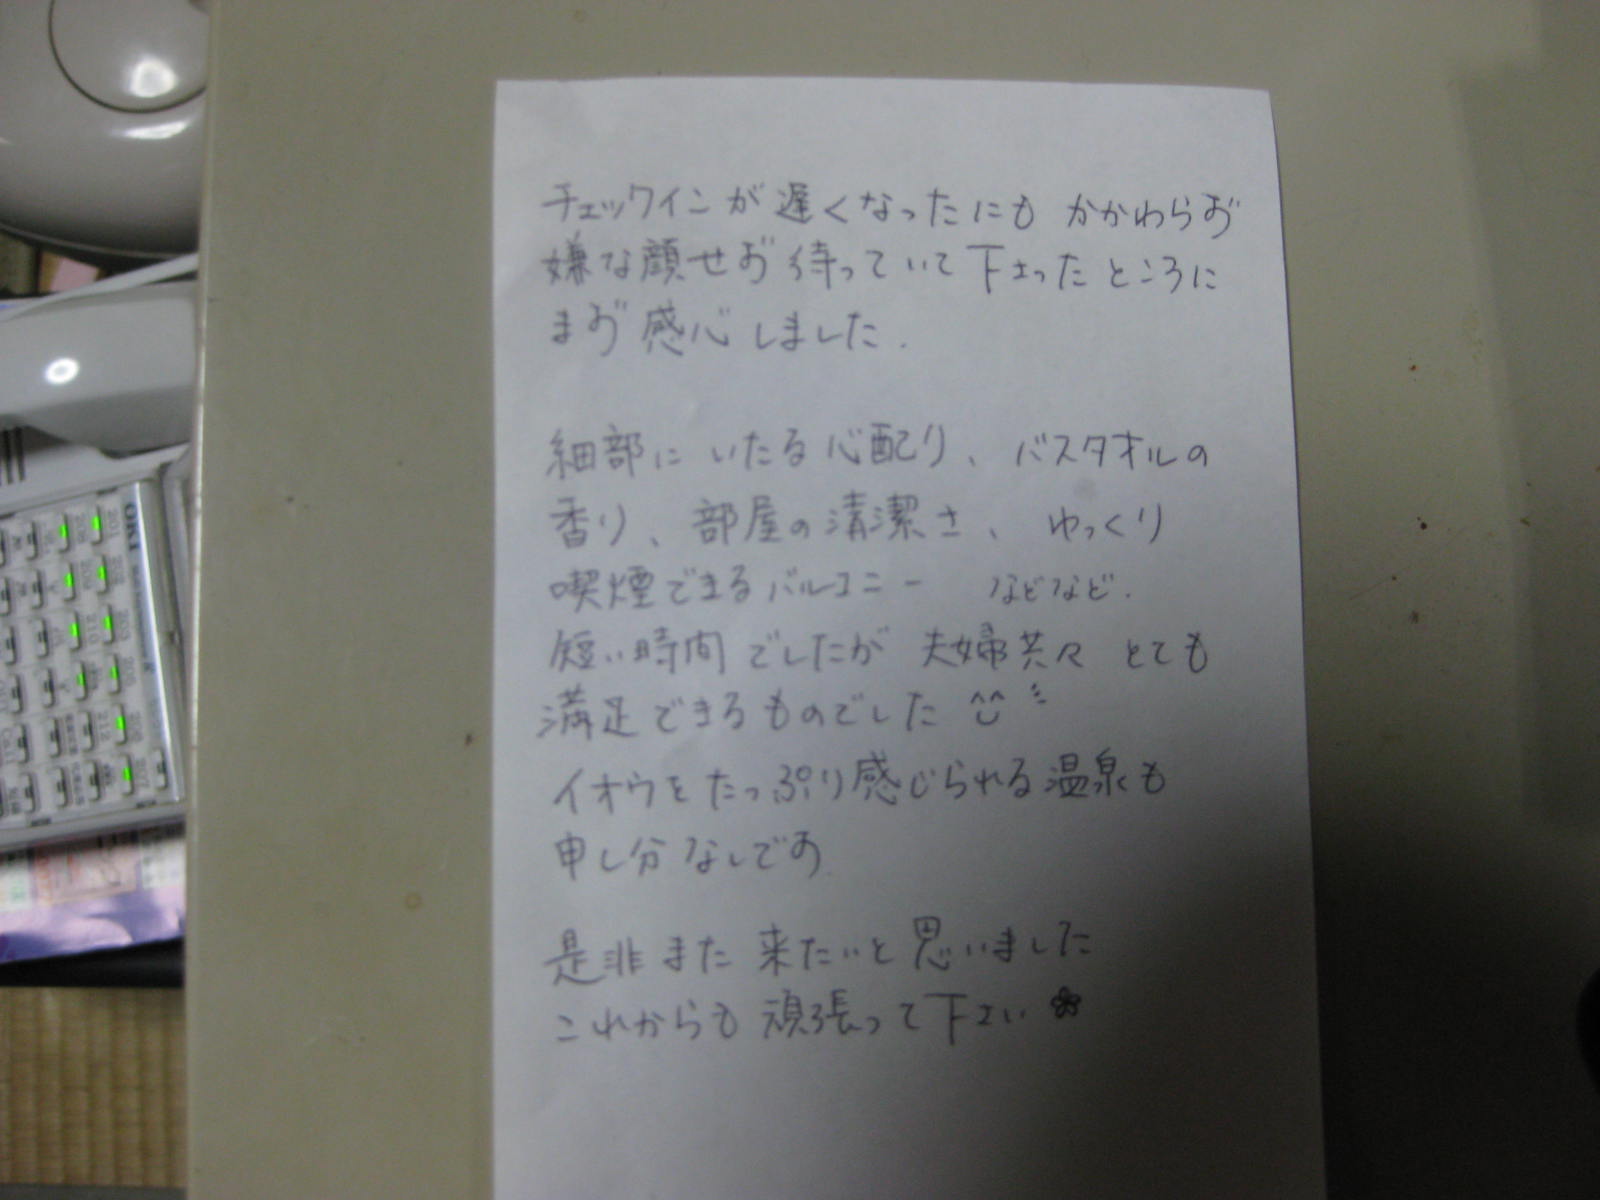 チェックインが遅くなったにも かかわらず
嫌な顔せず待っていて下さったところに
まず感心しました.
細部にいたる心配り、バスタオルの
香り、部屋の清潔さ、ゆっくり
喫煙できるバルコニー などなど.
短い時間でしたが 夫婦共々 とても
満足できるものでした ^^
イオウをたっぷり感じられる温泉も
申し分なしです.
是非また来たいと思いました
これからも頑張って下さい
OKI